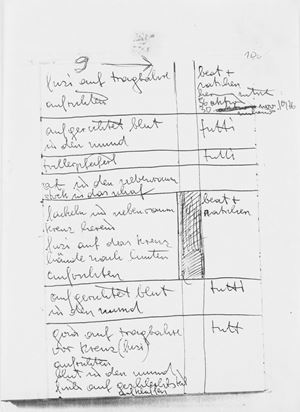 9
fuzi auf tragbahre
aufrichten
beat +
ratschen
aufgerichtet blut
in den mund
tutti
trillerpfeiferl
tutti
in den nebenraum
fackeln in nebenraum
kreuz herein
fuzi auf das kreuz
hände nach hinten
aufrichten
beat +
ratschen
aufgerichtet blut
in den mund
tutti
auf tragbahre
vor kreuz (fuzi)
aufrichten
blut in den mund
tutt